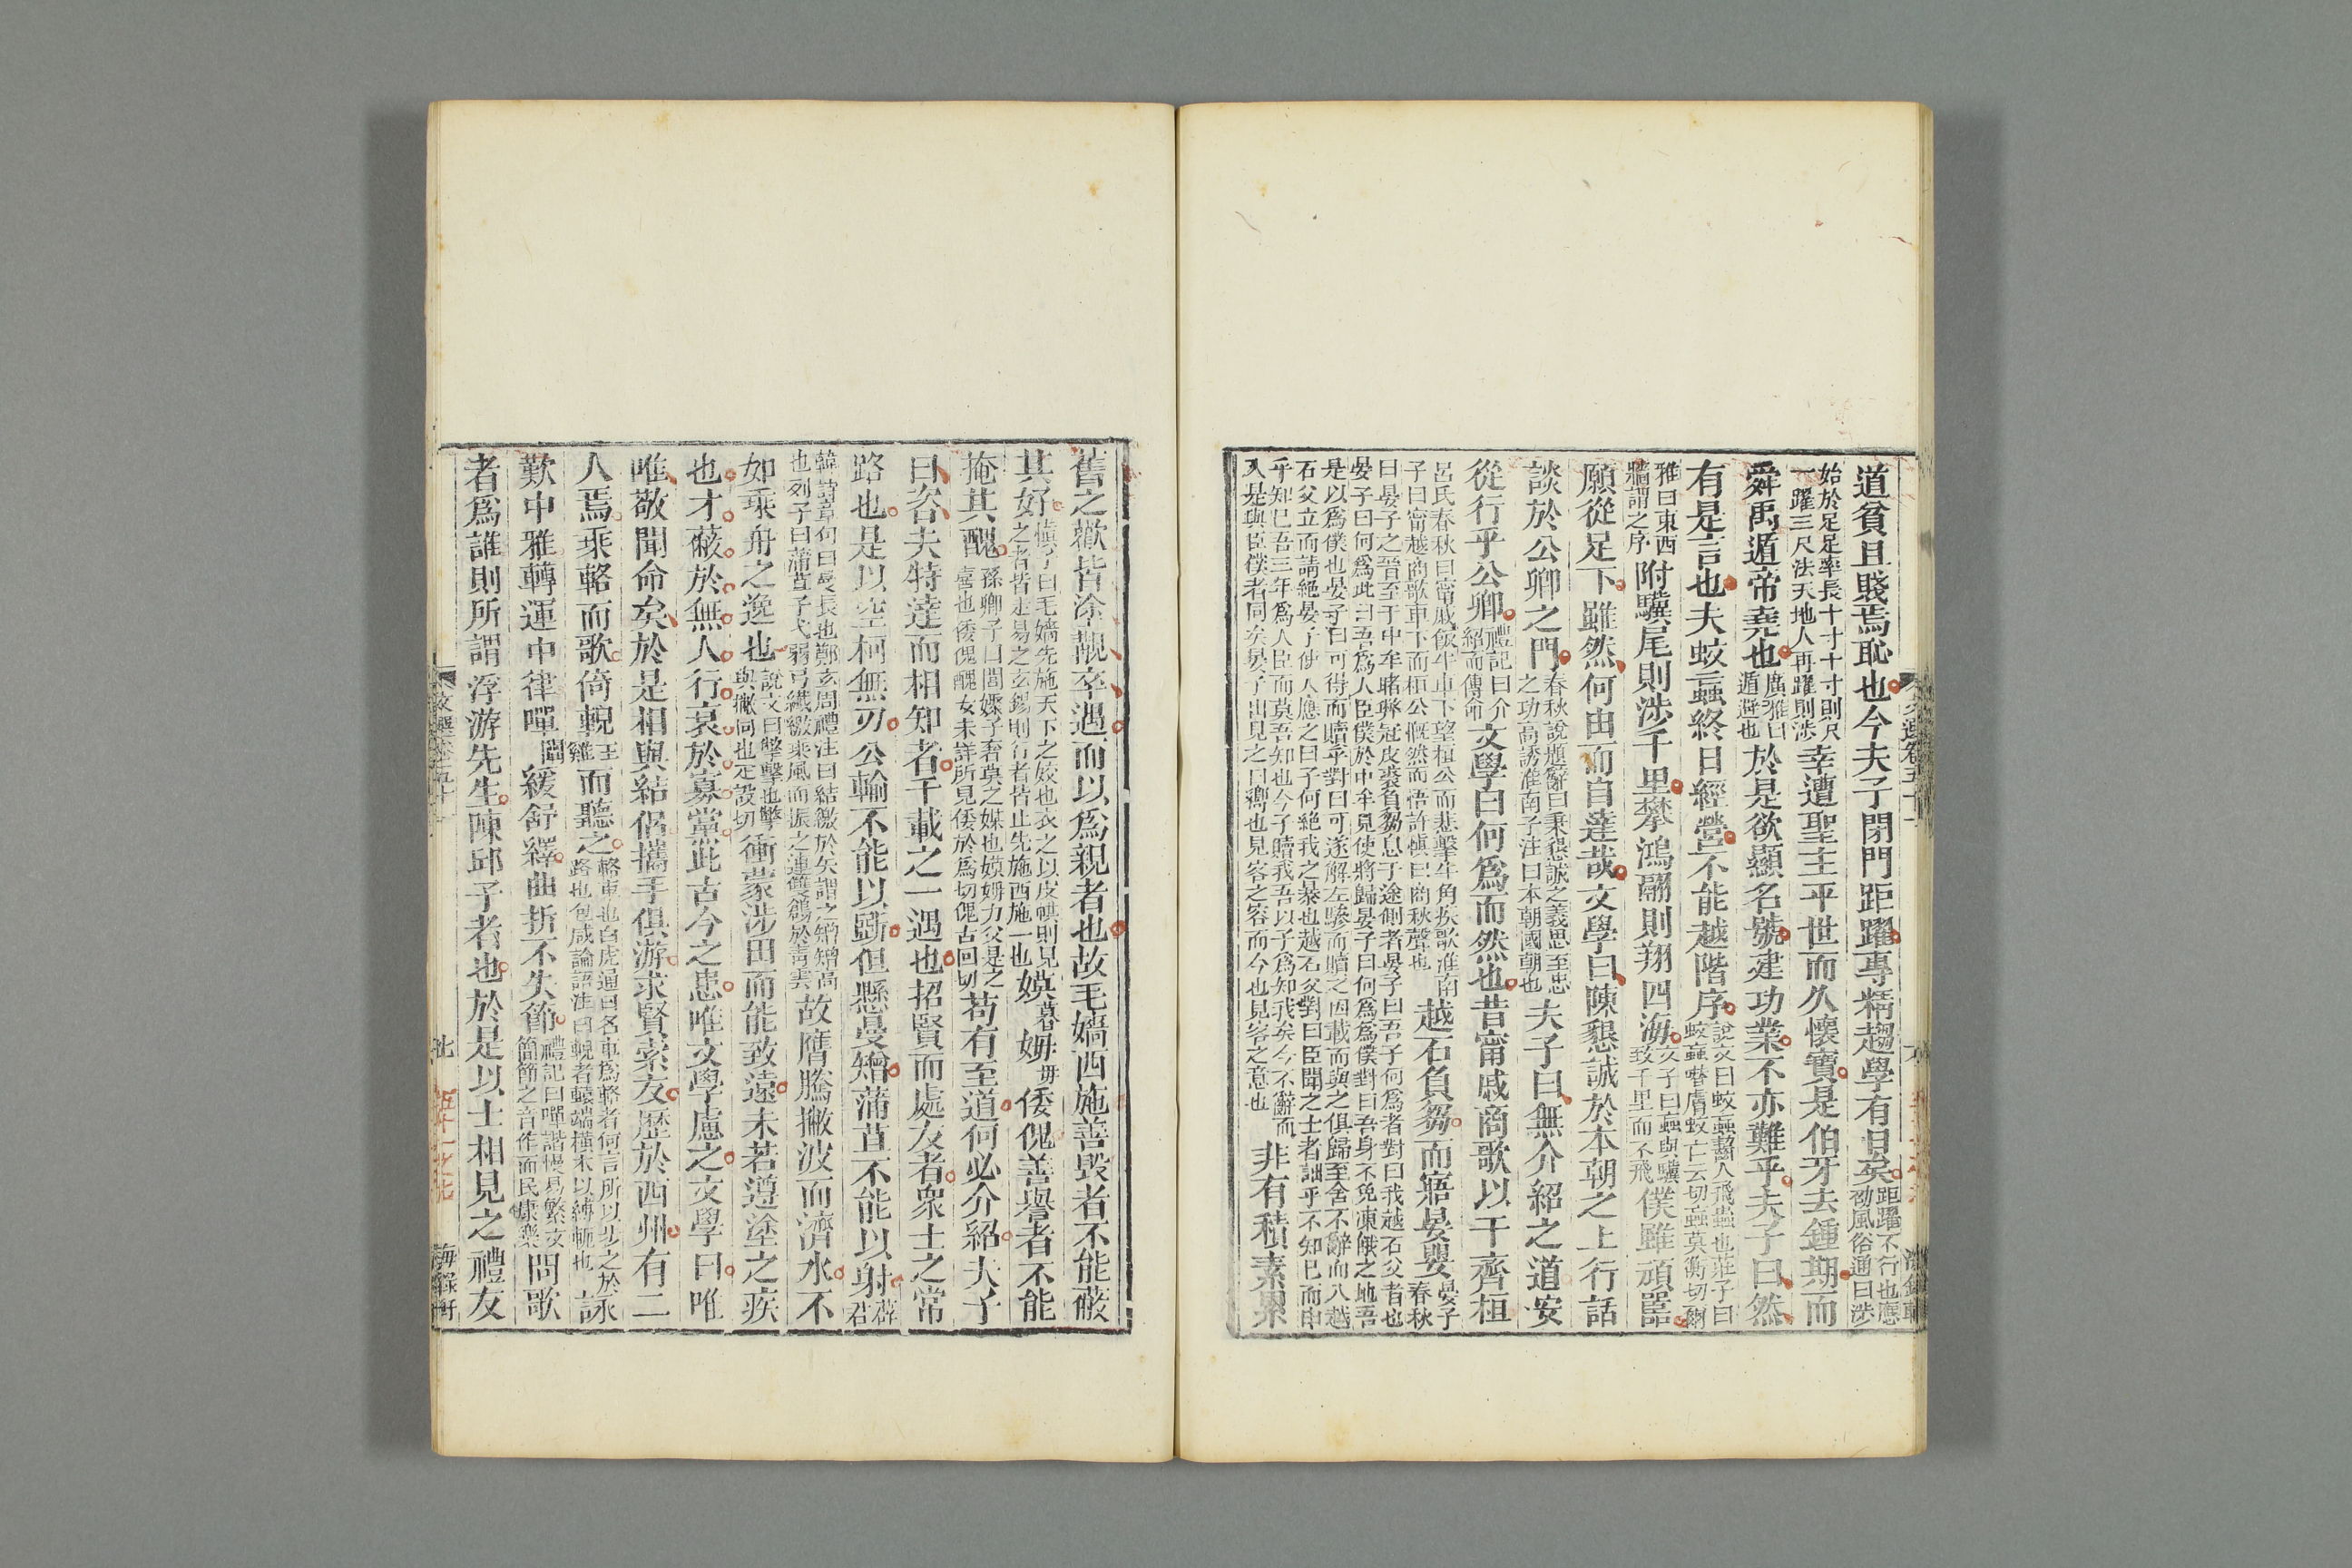 道貧且賤焉恥也今夫子閉門距躍專精趨學有日矣距躍不行也應劭風俗通曰涉
始於足足率長十寸十寸則尺一躍三尺法天地人再躍則涉幸遭聖主平世而久懷寶是伯牙去鍾期而
舜禹遁帝堯也廣雅曰遁避也於是欲顯名號建功業不亦難乎夫子曰然
有是言也夫蚊䖟終日經營不能越階序說文曰蚊䖟齧人飛蟲也莊子曰蚊䖟噆膚蚊亡云切䖟莫衡切爾
雅曰東西牆謂之序附驥尾則涉千里攀鴻翮則翔四海文子曰䖟與驥致千里而不飛僕雖頑嚚
願從足下雖然何由而自達哉文學曰陳懇誠於本朝之上行話
談於公卿之門春秋說題辭曰秉懇誠之義思至忠之功高誘淮南子注曰本朝國朝也夫子曰無介紹之道安
從行乎公卿禮記曰介紹而傳命文學曰何爲而然也昔甯戚商歌以干齊桓
呂氏春秋曰甯戚飯牛車下望桓公而悲擊牛角疾歌淮南子曰甯越商歌車下而桓公慨然而悟許慎曰商秋聲也越石負芻而寤晏嬰晏子春秋
曰晏子之晉至于中牟睹弊冠皮裘負芻息于途側者晏子曰吾子何爲者對曰我越石父者也晏子曰何爲此曰吾爲人臣僕於中牟見使將歸晏子曰何爲爲僕對曰吾身不免凍餓之地吾
是以爲僕也晏子曰可得而贖乎對曰可遂解左驂而贖之因載而與之俱歸至舍不辭而入越石父立而請絕晏子使人應之曰子何絕我之暴也越石父對曰臣聞之士者詘乎不知己而申
乎知己吾三年爲人臣而莫吾知也今子贖我吾以子爲知我矣今不辭而入是與臣僕者同矣晏子出見之曰嚮也見客之容而今也見客之意也非有積素累
舊之歡皆塗覯卒遇而以爲親者也故毛嬙西施善毀者不能蔽
其好慎子曰毛嬙先施天下之姣也衣之以皮倛則見之者皆走易之玄錫則行者皆止先施西施一也嫫暮姆毋倭傀善譽者不能
掩其醜孫卿子曰閭娵子奢莫之媒也嫫姆力父是之喜也倭傀醜女未詳所見倭於爲切傀古回切苟有至道何必介紹夫子
曰咨夫特達而相知者千載之一遇也招賢而處友者衆士之常
路也是以空柯無刃公輸不能以斲但懸曼矰蒲苴不能以射薛君
韓詩章句曰曼長也鄭玄周禮注曰結繳於矢謂之矰矰高也列子曰蒲苴子弋弱弓纖繳乘風而振之連雙鶬於青雲故膺騰撇波而濟水不
如乘舟之逸也說文曰擊擊也擊與撇同也疋設切衝蒙涉田而能致遠未若遵塗之疾
也才蔽於無人行衰於寡黨此古今之患唯文學慮之文學曰唯
唯敬聞命矣於是相與結侶攜手俱游求賢索友歷於西州有二
人焉乘輅而歌倚輗五雞而聽之輅車也白虎通曰名車爲輅者何言所以步之於路也包咸論語注曰輗者轅端橫木以縛軛也詠
歎中雅轉運中律嘽闡緩舒繹曲折不失節禮記曰嘽諧慢易繁文簡節之音作而民康樂問歌
者爲誰則所謂浮游先生陳邱子者也於是以士相見之禮友